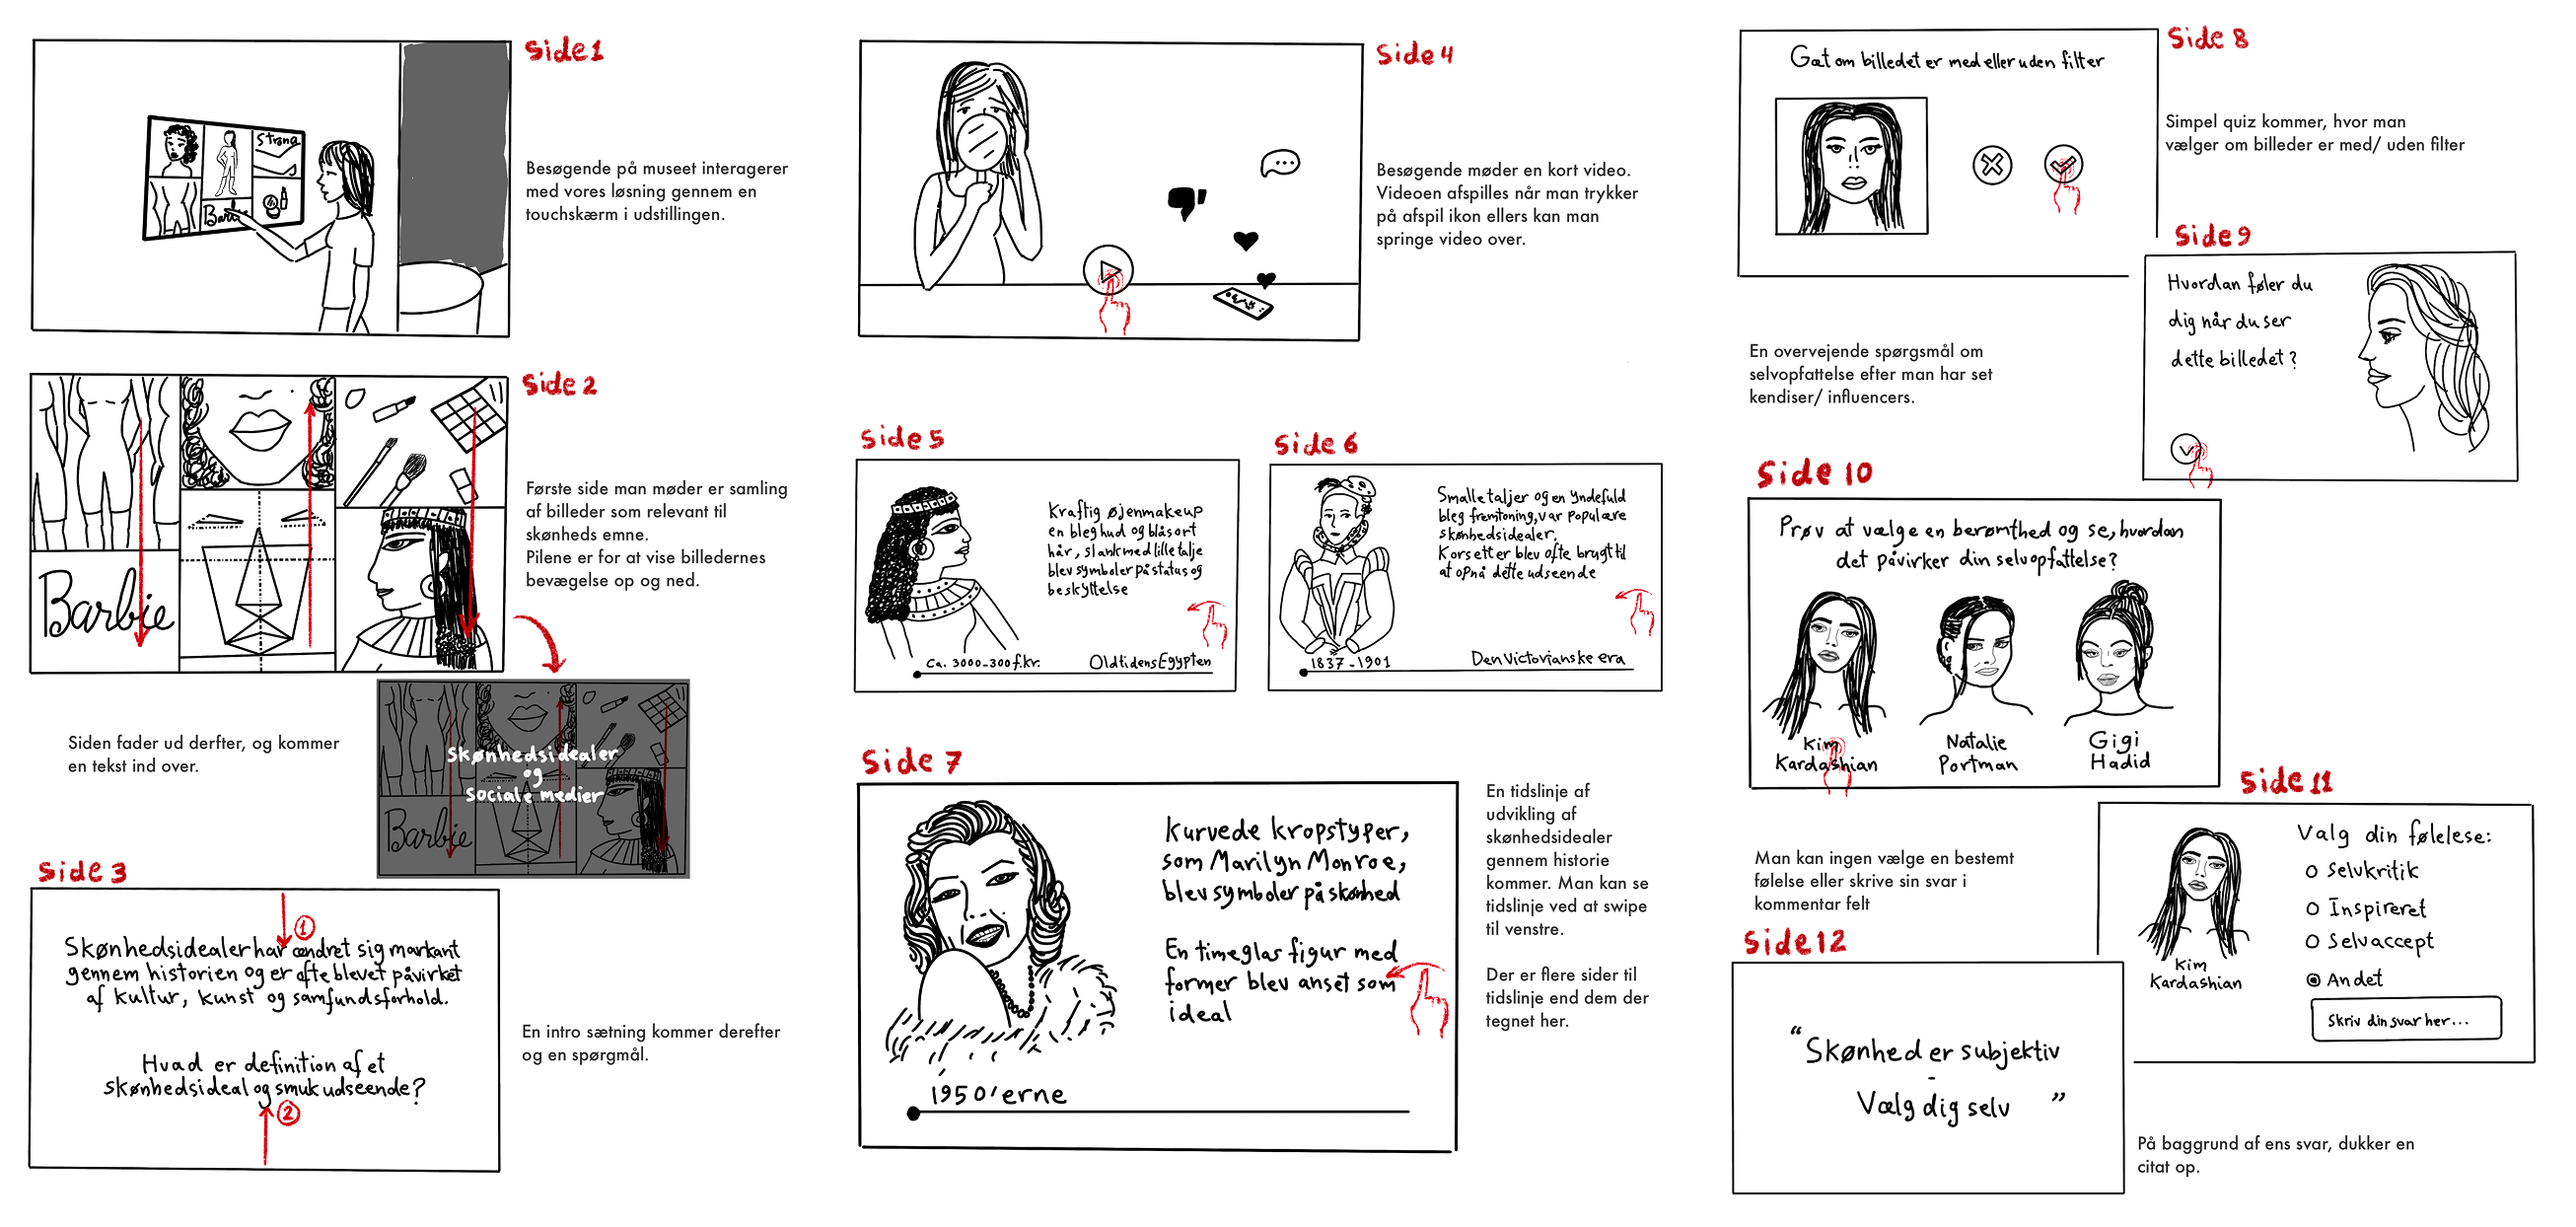 Side 1
Strong
Barbie
Besøgende på museet interagerer
med vores løsning gennem en
touchskærm i udstillingen.
Side 2
Barbie
Første side man møder er samling
af billeder som relevant til
skønheds emne.
Pilene er for at vise billedernes
bevægelse op og ned.
Siden fader ud derfter, og kommer
en tekst ind over.
Skønhedsidealer
og
Sociale medier
Barbie
Side 3
1
Skønhedsidealer har ændret sig markant
gennem historien og er ofte blevet påvirket
af kultur, kunst og samfundsforhold.
Hvad er definition af et
skønhedsideal og smuk udseende?
2
En intro sætning kommer derefter
og en spørgmål.
Side 4
Besøgende møder en kort video.
Videoen afspilles når man trykker
på afspil ikon ellers kan man
springe video over.
Side 5
Kraftig øjenmakeup
en bleg hud og blåsort
hår, slank med lille talje
blev symboler på status og
beskyttelse
Ca. 3000-300 f.kr. Oldtidens Egypten
Side 6
Smalle taljer og en yndefuld
bleg fremtoning, var populære
skønhedsidealer.
Korsetter blev ofte brugt til
at opnå dette udseende
1837-1901 Den Victorianske era
Side 7
Kurvede kropstyper,
som Marilyn Monroe,
blev symboler på skønhed
En timeglas figur med
former blev anset som
ideal
1950'erne
En tidslinje af
udvikling af
skønhedsidealer
gennem historie
kommer. Man kan se
tidslinje ved at swipe
til venstre.
Der er flere sider til
tidslinje end dem der
tegnet her.
Side 8
Gæt om billedet er med eller uden filter
Simpel quiz kommer, hvor man
vælger om billeder er med/ uden filter
Side 9
Hvordan føler du
dig når du ser
dette billedet?
En overvejende spørgsmål om
selvopfattelse efter man har set
kendiser/ influencers.
Side 10
Prøv at vælge en berømthed og se, hvordan
det påvirker din selvopfattelse?
Kim
Kardashian
Natalie
Portman
Gigi
Hadid
Side 11
Valg din følelese:
Selvkritik
Inspireret
Selvaccept
Andet
Skriv din svar her...
Kim
Kardashian
Man kan ingen vælge en bestemt
følelse eller skrive sin svar i
kommentar felt
Side 12
" Skønhed er subjektiv
-
Vælg dig selv "
På baggrund af ens svar, dukker en
citat op.